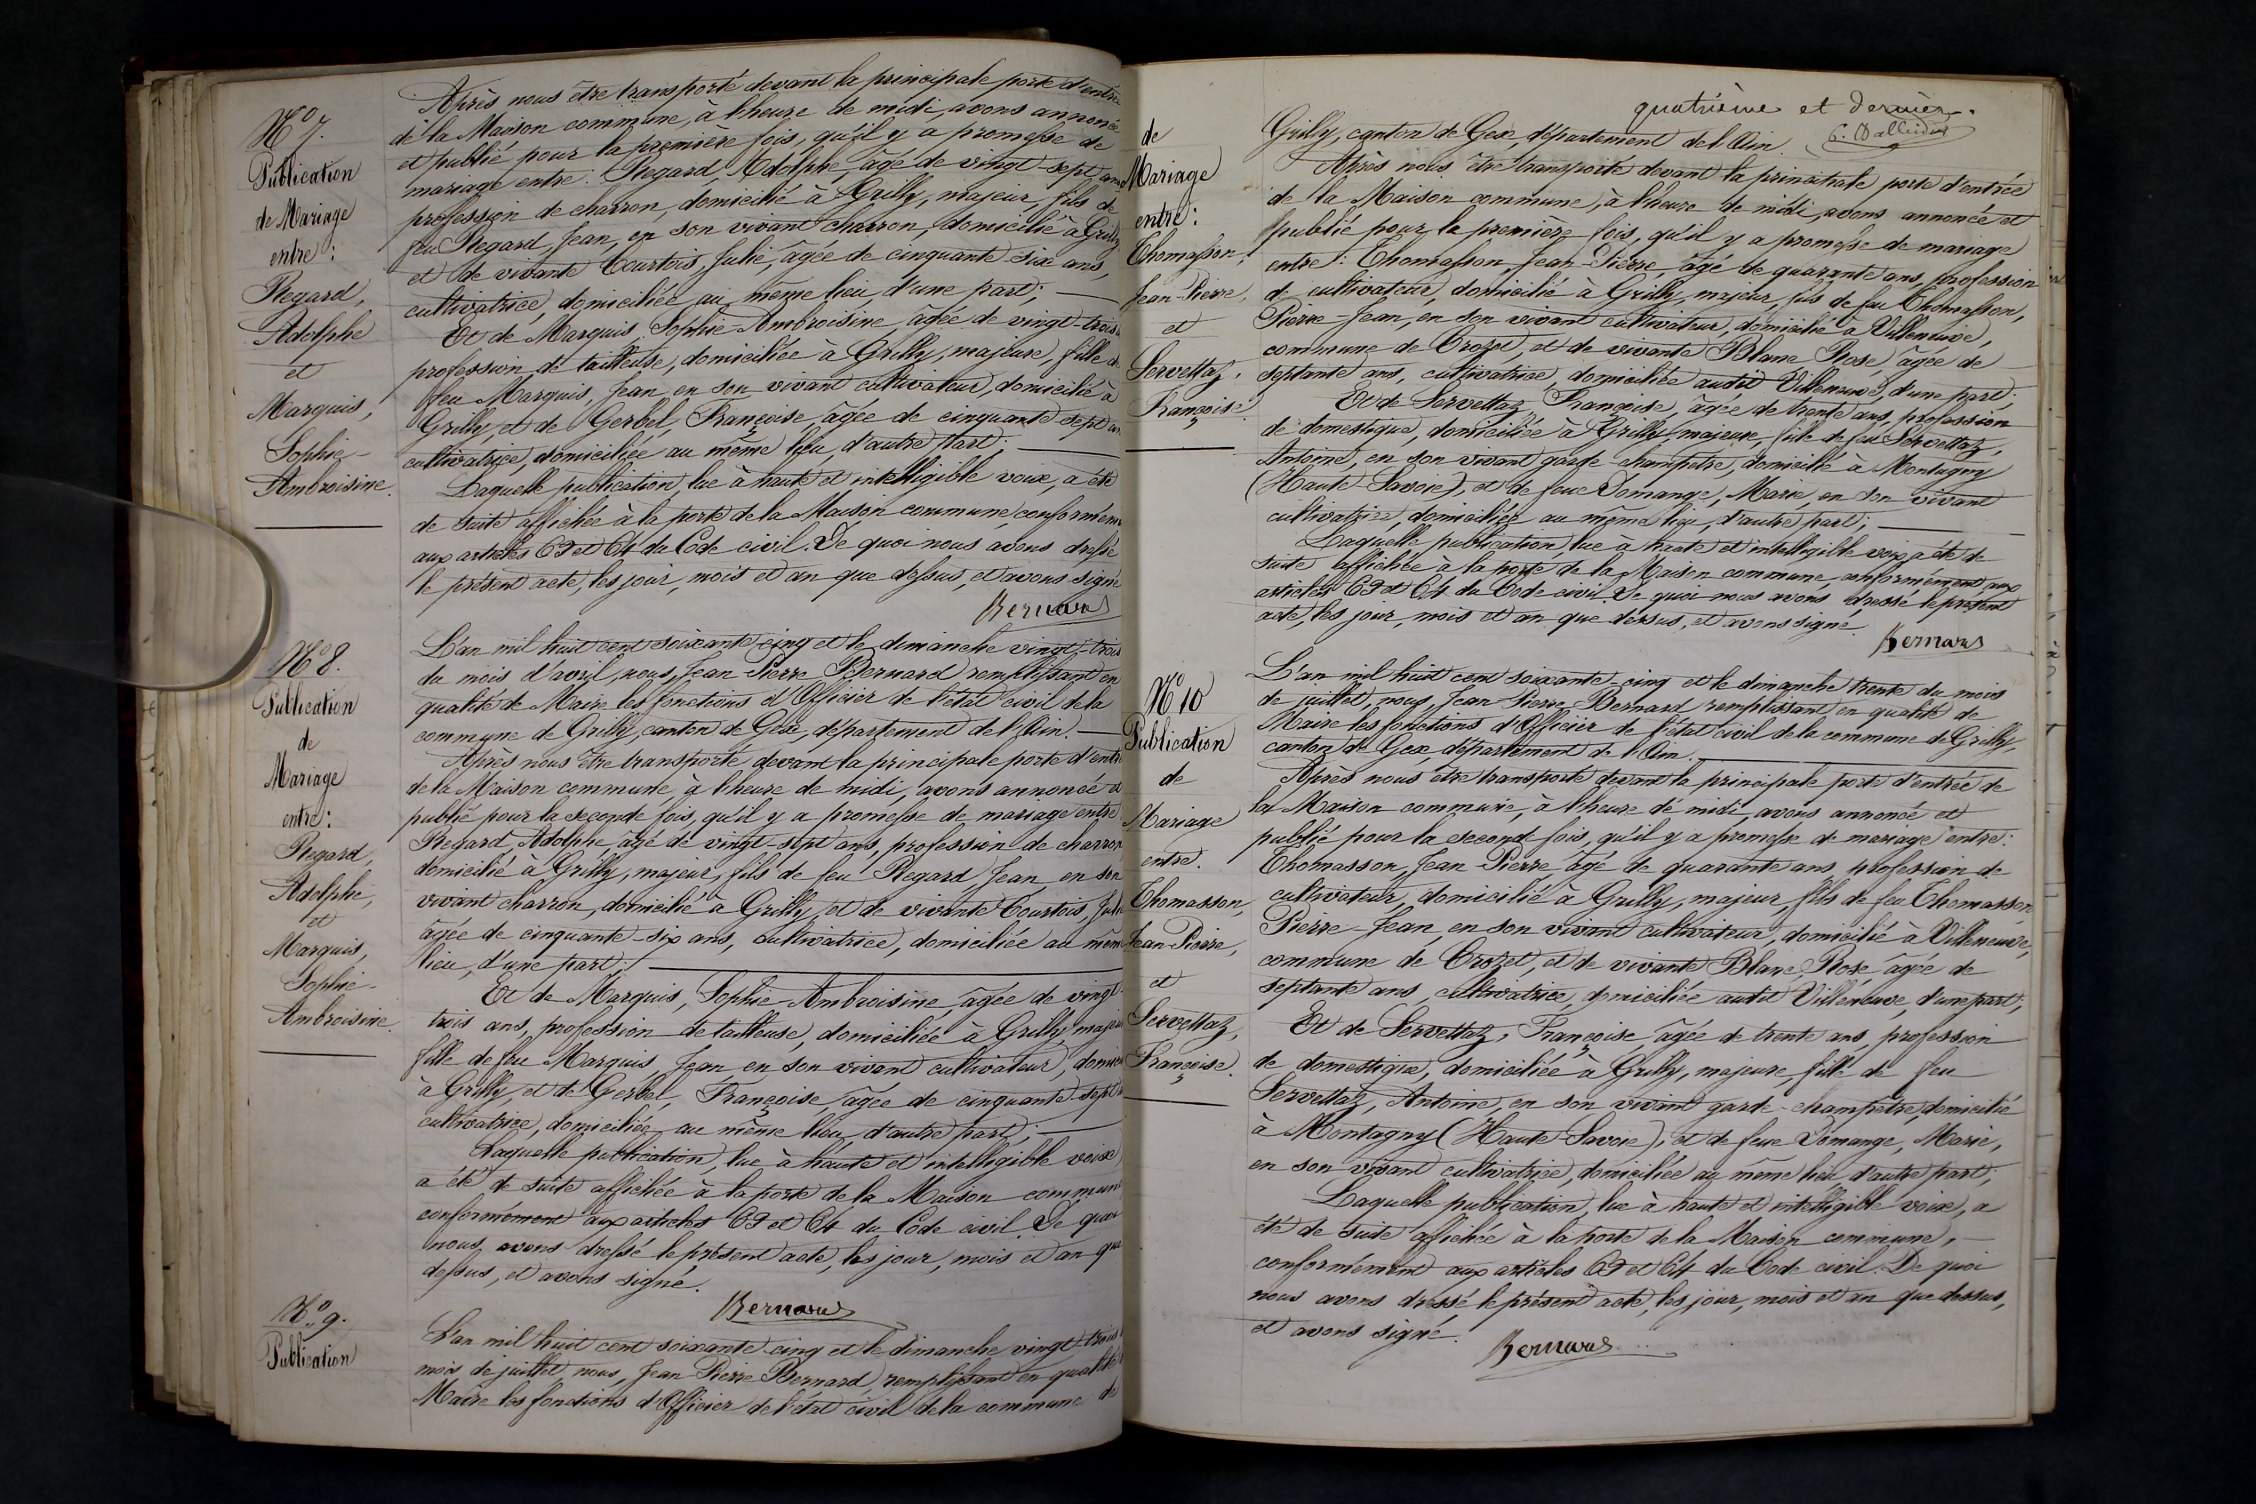 N.º 7.
Publication
de Mariage
entre :
Regard,
Adolphe
et
Marquis,
Sophie-
Ambroisine.
Après nous être transporté devant la principale porte d'entrée
de la Maison commune, à l'heure de midi, avons annoncé
et publié pour la première fois, qu'il y a promesse de
mariage entre : Regard, Adolphe, âgé de vingt-sept ans
profession de charron, domicilié à Grilly, majeur, fils de
feu Regard, Jean, en son vivant charron, domicilié à Grilly
et de vivante Courtois, Julie, âgée de cinquante six ans,
cultivatrice, domiciliée au même lieu, d'une part ;
Et de Marquis, Sophie-Ambroisine, âgée de vingt-trois
profession de tailleuse, domiciliée à Grilly, majeure, fille de
feu Marquis, Jean, en son vivant cultivateur, domicilié à
Grilly, et de Gerbel, Françoise, âgée de cinquante-sept an
cultivatrice, domiciliée au même lieu, d'autre part ;
Laquelle publication, lue à haute et intelligible voix, a été
de suite affichée à la porte de la Maison commune, conformém
aux articles 63 et 64 du Code civil. De quoi nous avons dressé
le présent acte, les jour, mois et an que dessus, et avons signé
Bernard
N.º 8.
Publication
de
Mariage
entre :
Regard,
Adolphe,
et
Marquis,
Sophie-
Ambroisine.
L'an mil huit cent soixante-cinq et le dimanche vingt-trois
du mois d'avril, nous, Jean Pierre Bernard remplissant en
qualité de Maire les fonctions d'Officier de l'état civil de la
commune de Grilly, canton de Gex, département de l'Ain.
Après nous être transporté devant la principale porte d'entré
de la Maison commune, à l'heure de midi, avons annoncé et
publié pour la seconde fois, qu'il y a promesse de mariage entre
Regard, Adolphe, âgé de vingt-sept ans, profession de charron,
domicilié à Grilly, majeur, fils de feu Regard, Jean, en son
vivant charron, domicilié à Grilly, et de vivante Courtois, Julie
âgée de cinquante-six ans, cultivatrice, domiciliée au même
lieu, d'une part ;
Et de Marquis, Sophie-Ambroisine, âgée de vingt-
trois ans, profession de tailleuse, domiciliée à Grilly, majeu
fille de feu Marquis, Jean, en son vivant cultivateur, domici
à Grilly, et de Gerbel, Françoise, âgée de cinquante-sept
cultivatrice, domiciliée au même lieu, d'autre part ;
Laquelle publication, lue à haute et intelligible voix
a été de suite affichée à la porte de la Maison commune
conformément aux articles 63 et 64 du Code civil. De quoi
nous avons dressé le présent acte, les jour, mois et an que
dessus, et avons signé.
Bernard
N.º 9.
Publication
L'an mil huit cent soixante-cinq et le dimanche vingt-trois
mois de juillet, nous, Jean Pierre Bernard, remplissant en qualité
Maire les fonctions d'Officier de l'état civil de la commune de
quatrième et dernier.
de
Mariage
entre :
Thomasson,
Jean-Pierre,
et
Servettaz,
Françoise.
Grilly, canton de Gex, département de l'Ain.
Après nous être transporté devant la principale porte d'entrée
de la Maison commune, à l'heure de midi, avons annoncé et
publié pour la première fois, qu'il y a promesse de mariage
entre : Thomasson, Jean-Pierre, âgé de quarante ans, profession
de cultivateur, domicilié à Grilly, majeur, fils de feu Thomasson,
Pierre-Jean, en son vivant cultivateur, domicilié à Villeneuve,
commune de Crozet, et de vivante Blanc Rose, âgée de
septante ans, cultivatrice, domiciliée audit Villeneuve, d'une part ;
Et de Servettaz, Françoise, âgée de trente ans, profession
de domestique, domiciliée à Grilly, majeure, fille de feu Servettaz,
Antoine, en son vivant garde-champêtre, domicilié à Montagny
(Haute-Savoie), et de feue Domange, Marie, en son vivant
cultivatrice, domiciliée au même lieu, d'autre part ;
Laquelle publication, lue à haute et intelligible voix, a été de
suite affichée à la porte de la Maison commune, conformément aux
articles 63 et 64 du Code civil. De quoi nous avons dressé le présent
acte, les jour, mois et an que dessus, et avons signé.
Bernard
N.º 10
Publication
de
Mariage
entre.
Thomasson,
Jean-Pierre,
et
Servettaz,
Françoise.
L'an mil huit cent soixante-cinq et le dimanche trente du mois
de juillet, nous, Jean Pierre Bernard remplissant en qualité de
Maire les fonctions d'Officier de l'état civil de la commune de Grilly,
canton de Gex, département de l'Ain.
Après nous être transporté devant la principale porte d'entrée de
la Maison commune, à l'heure de midi, avons annoncé et
publié pour la seconde fois, qu'il y a promesse de mariage entre :
Thomasson, Jean-Pierre, âgé de quarante ans, profession de
cultivateur, domicilié à Grilly, majeur, fils de feu Thomasson
Pierre-Jean, en son vivant cultivateur, domicilié à Villeneuve,
commune de Crozet, et de vivante Blanc, Rose âgée de
septante ans, cultivatrice, domiciliée audit Villeneuve, d'une part ;
Et de Servettaz, Françoise, âgée de trente ans, profession
de domestique, domiciliée à Grilly, majeure, fille de feu
Servettaz, Antoine, en son vivant garde-champêtre, domicilié
à Montagny (Haute-Savoie), et de feue Domange, Marie,
en son vivant cultivatrice, domiciliée au même lieu, d'autre part ;
Laquelle publication, lue à haute et intelligible voix, a
été de suite affichée à la porte de la Maison commune,
conformément aux articles 63 et 64 du Code civil. De quoi
nous avons dressé le présent acte, les jour, mois et an que dessus,
et avons signé.
Bernard